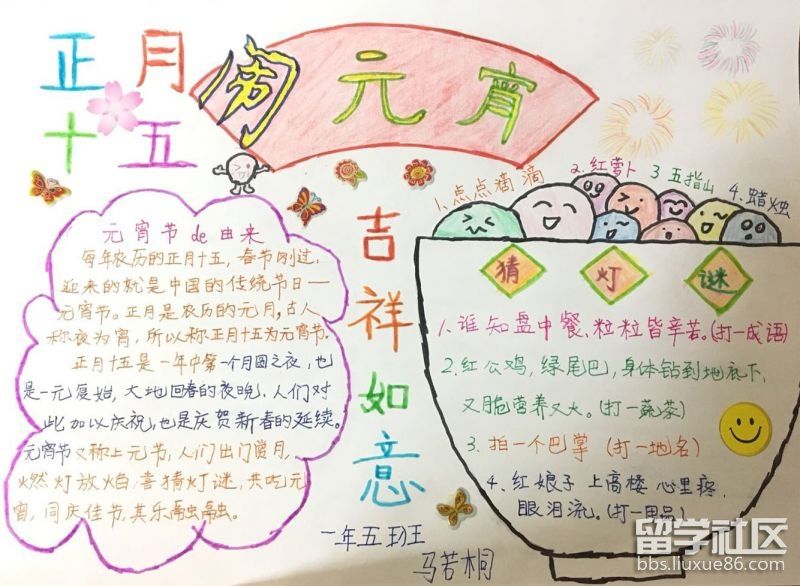 正月
十五
闹元宵
元宵节de由来
每年农历的正月十五，春节刚过，
迎来的就是中国的传统节日一
元宵节。正月是农历的元月，古人
称夜为宵，所以称正月十五为元宵节.
正月十五是一年中第一个月圆之夜，也
是一元复始，大地回春的夜晚，人们对
此加以庆祝，也是庆贺新春的延续。
元宵节又称上元节，人们出门赏月，
燃灯放焰、喜猜灯谜，共吃元
宵，同庆佳节，其乐融融。
吉祥如意
1.点点滴滴
2.红萝卜
3五指山
4.蜡烛
猜灯谜
1.谁知盘中餐、粒粒皆辛苦。(打一成语)
2.红公鸡，绿尾巴，身体钻到地底下，
又脆营养又大。(打一蔬菜)
3.拍一个巴掌 (打一地名)
4.红娘子上高楼 心里疼，
眼泪流。(打一用品)
一年五班
马若桐
留学社区
bbs.liuxue86.com